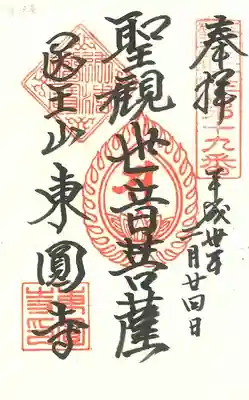 奉拝
第十九番
平成丗年
二月廿四日
聖観世音菩薩
医王山東圓寺
東圓寺印